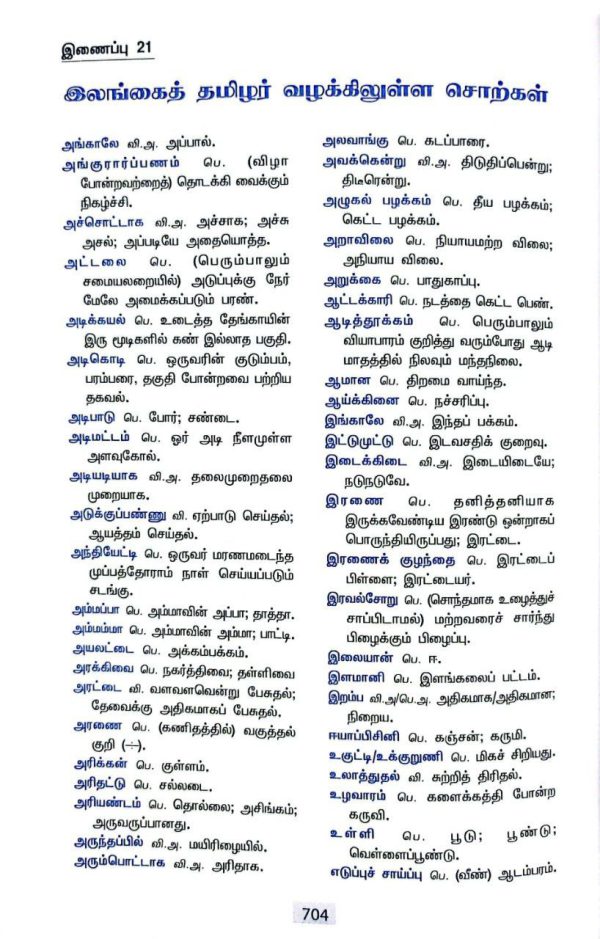 இணைப்பு 21
இலங்கைத் தமிழர் வழக்கிலுள்ள சொற்கள்
அங்காலே வி.அ. அப்பால்.
அங்குரார்ப்பணம் பெ. (விழா
போன்றவற்றைத்) தொடக்கி வைக்கும்
நிகழ்ச்சி.
அச்சொட்டாக வி.அ. அச்சாக; அச்சு
அசல்; அப்படியே அதையொத்த.
அட்டலை பெ. (பெரும்பாலும்
சமையலறையில்) அடுப்புக்கு நேர்
மேலே அமைக்கப்படும் பரண்.
அடிக்கயல் பெ. உடைத்த தேங்காயின்
இரு மூடிகளில் கண் இல்லாத பகுதி.
அடிகொடி பெ. ஒருவரின் குடும்பம்,
பரம்பரை, தகுதி போன்றவை பற்றிய
தகவல்.
அடிபாடு பெ. போர்; சண்டை.
அடிமட்டம் பெ. ஓர் அடி நீளமுள்ள
அளவுகோல்.
அடியடியாக வி.அ. தலைமுறைதலை
முறையாக.
அடுக்குப்பண்ணு வி. ஏற்பாடு செய்தல்;
ஆயத்தம் செய்தல்.
அந்தியேட்டி பெ. ஒருவர் மரணமடைந்த
முப்பத்தோராம் நாள் செய்யப்படும்
சடங்கு.
அம்மப்பா பெ. அம்மாவின் அப்பா; தாத்தா.
அம்மம்மா பெ. அம்மாவின் அம்மா; பாட்டி.
அயலட்டை பெ. அக்கம்பக்கம்.
அரக்கிவை பெ. நகர்த்திவை; தள்ளிவை
அரட்டை வி. வளவளவென்று பேசுதல்;
தேவைக்கு அதிகமாகப் பேசுதல்.
அரணை பெ. (கணிதத்தில்) வகுத்தல்
குறி (÷).
அரிக்கன் பெ. குள்ளம்.
அரிதட்டு பெ. சல்லடை.
அரியண்டம் பெ. தொல்லை; அசிங்கம்;
அருவருப்பானது.
அருந்தப்பில் வி.அ. மயிரிழையில்.
அரும்பொட்டாக வி.அ. அரிதாக.
அலவாங்கு பெ. கடப்பாரை.
அவக்கென்று வி.அ. திடுதிப்பென்று;
திடீரென்று.
அழுகல் பழக்கம் பெ. தீய பழக்கம்;
கெட்ட பழக்கம்.
அறாவிலை பெ. நியாயமற்ற விலை;
அநியாய விலை.
அறுக்கை பெ. பாதுகாப்பு.
ஆட்டக்காரி பெ. நடத்தை கெட்ட பெண்.
ஆடித்தூக்கம் பெ. பெரும்பாலும்
வியாபாரம் குறித்து வரும்போது ஆடி
மாதத்தில் நிலவும் மந்தநிலை.
ஆமான பெ. திறமை வாய்ந்த.
ஆய்க்கினை பெ. நச்சரிப்பு.
இங்காலே வி.அ. இந்தப் பக்கம்.
இட்டுமுட்டு பெ. இடவசதிக் குறைவு.
இடைக்கிடை வி.அ. இடையிடையே;
நடுநடுவே.
இரணை பெ. தனித்தனியாக
இருக்கவேண்டிய இரண்டு ஒன்றாகப்
பொருந்தியிருப்பது; இரட்டை.
இரணைக் குழந்தை பெ. இரட்டைப்
பிள்ளை; இரட்டையர்.
இரவல்சோறு பெ. (சொந்தமாக உழைத்துச்
சாப்பிடாமல்) மற்றவரைச் சார்ந்து
பிழைக்கும் பிழைப்பு.
இலையான் பெ. ஈ.
இளமானி பெ. இளங்கலைப் பட்டம்.
இறம்ப வி.அ/பெ.அ. அதிகமாக/அதிகமான;
நிறைய.
ஈயாப்பிசினி பெ. கஞ்சன்; கருமி.
உகுட்டி/உக்குறுணி பெ. மிகச் சிறியது.
உலாத்துதல் வி. சுற்றித் திரிதல்.
உழவாரம் பெ. களைக்கத்தி போன்ற
கருவி.
உள்ளி பெ. பூடு; பூண்டு;
வெள்ளைப்பூண்டு.
எடுப்புச் சாய்ப்பு பெ. (வீண்) ஆடம்பரம்.
704